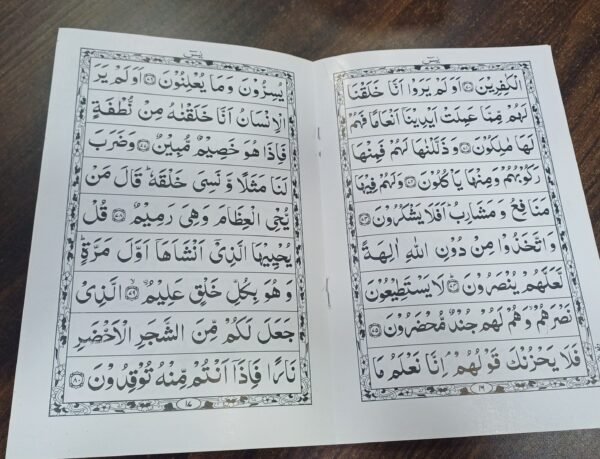 يٰسٓ
الْكٰفِرِيْنَ ﴿۷۰﴾ اَوَلَمْ يَرَوْا اَنَّا خَلَقْنَا
لَهُمْ مِّمَّا عَمِلَتْ اَيْدِيْنَاۤ اَنْعَامًا فَهُمْ
لَهَا مٰلِكُوْنَ ﴿۷۱﴾ وَذَلَّلْنٰهَا لَهُمْ فَمِنْهَا
رَكُوْبُهُمْ وَمِنْهَا يَاْكُلُوْنَ ﴿۷۲﴾ وَلَهُمْ فِيْهَا
مَنَافِعُ وَمَشَارِبُ ؕ اَفَلَا يَشْكُرُوْنَ ﴿۷۳﴾
وَاتَّخَذُوْا مِنْ دُوْنِ اللّٰهِ اٰلِهَةً
لَّعَلَّهُمْ يُنْصَرُوْنَ ﴿۷۴﴾ لَا يَسْتَطِيْعُوْنَ
نَصْرَهُمْ ۙ وَهُمْ لَهُمْ جُنْدٌ مُّحْضَرُوْنَ ﴿۷۵﴾
فَلَا يَحْزُنْكَ قَوْلُهُمْ ۘ اِنَّا نَعْلَمُ مَا
۱۶
يٰسٓ
يُسِرُّوْنَ وَمَا يُعْلِنُوْنَ ﴿۷۶﴾ اَوَلَمْ يَرَ
الْاِنْسَانُ اَنَّا خَلَقْنٰهُ مِنْ نُّطْفَةٍ
فَاِذَا هُوَ خَصِيْمٌ مُّبِيْنٌ ﴿۷۷﴾ وَضَرَبَ
لَنَا مَثَلًا وَّنَسِىَ خَلْقَهٗ ؕ قَالَ مَنْ
يُّحْىِ الْعِظَامَ وَهِىَ رَمِيْمٌ ﴿۷۸﴾ قُلْ
يُحْيِيْهَا الَّذِىْۤ اَنْشَاَهَاۤ اَوَّلَ مَرَّةٍ ؕ
وَهُوَ بِكُلِّ خَلْقٍ عَلِيْمٌ ﴿۷۹﴾ الَّذِىْ
جَعَلَ لَكُمْ مِّنَ الشَّجَرِ الْاَخْضَرِ
نَارًا فَاِذَاۤ اَنْتُمْ مِّنْهُ تُوْقِدُوْنَ ﴿۸۰﴾
۱۷